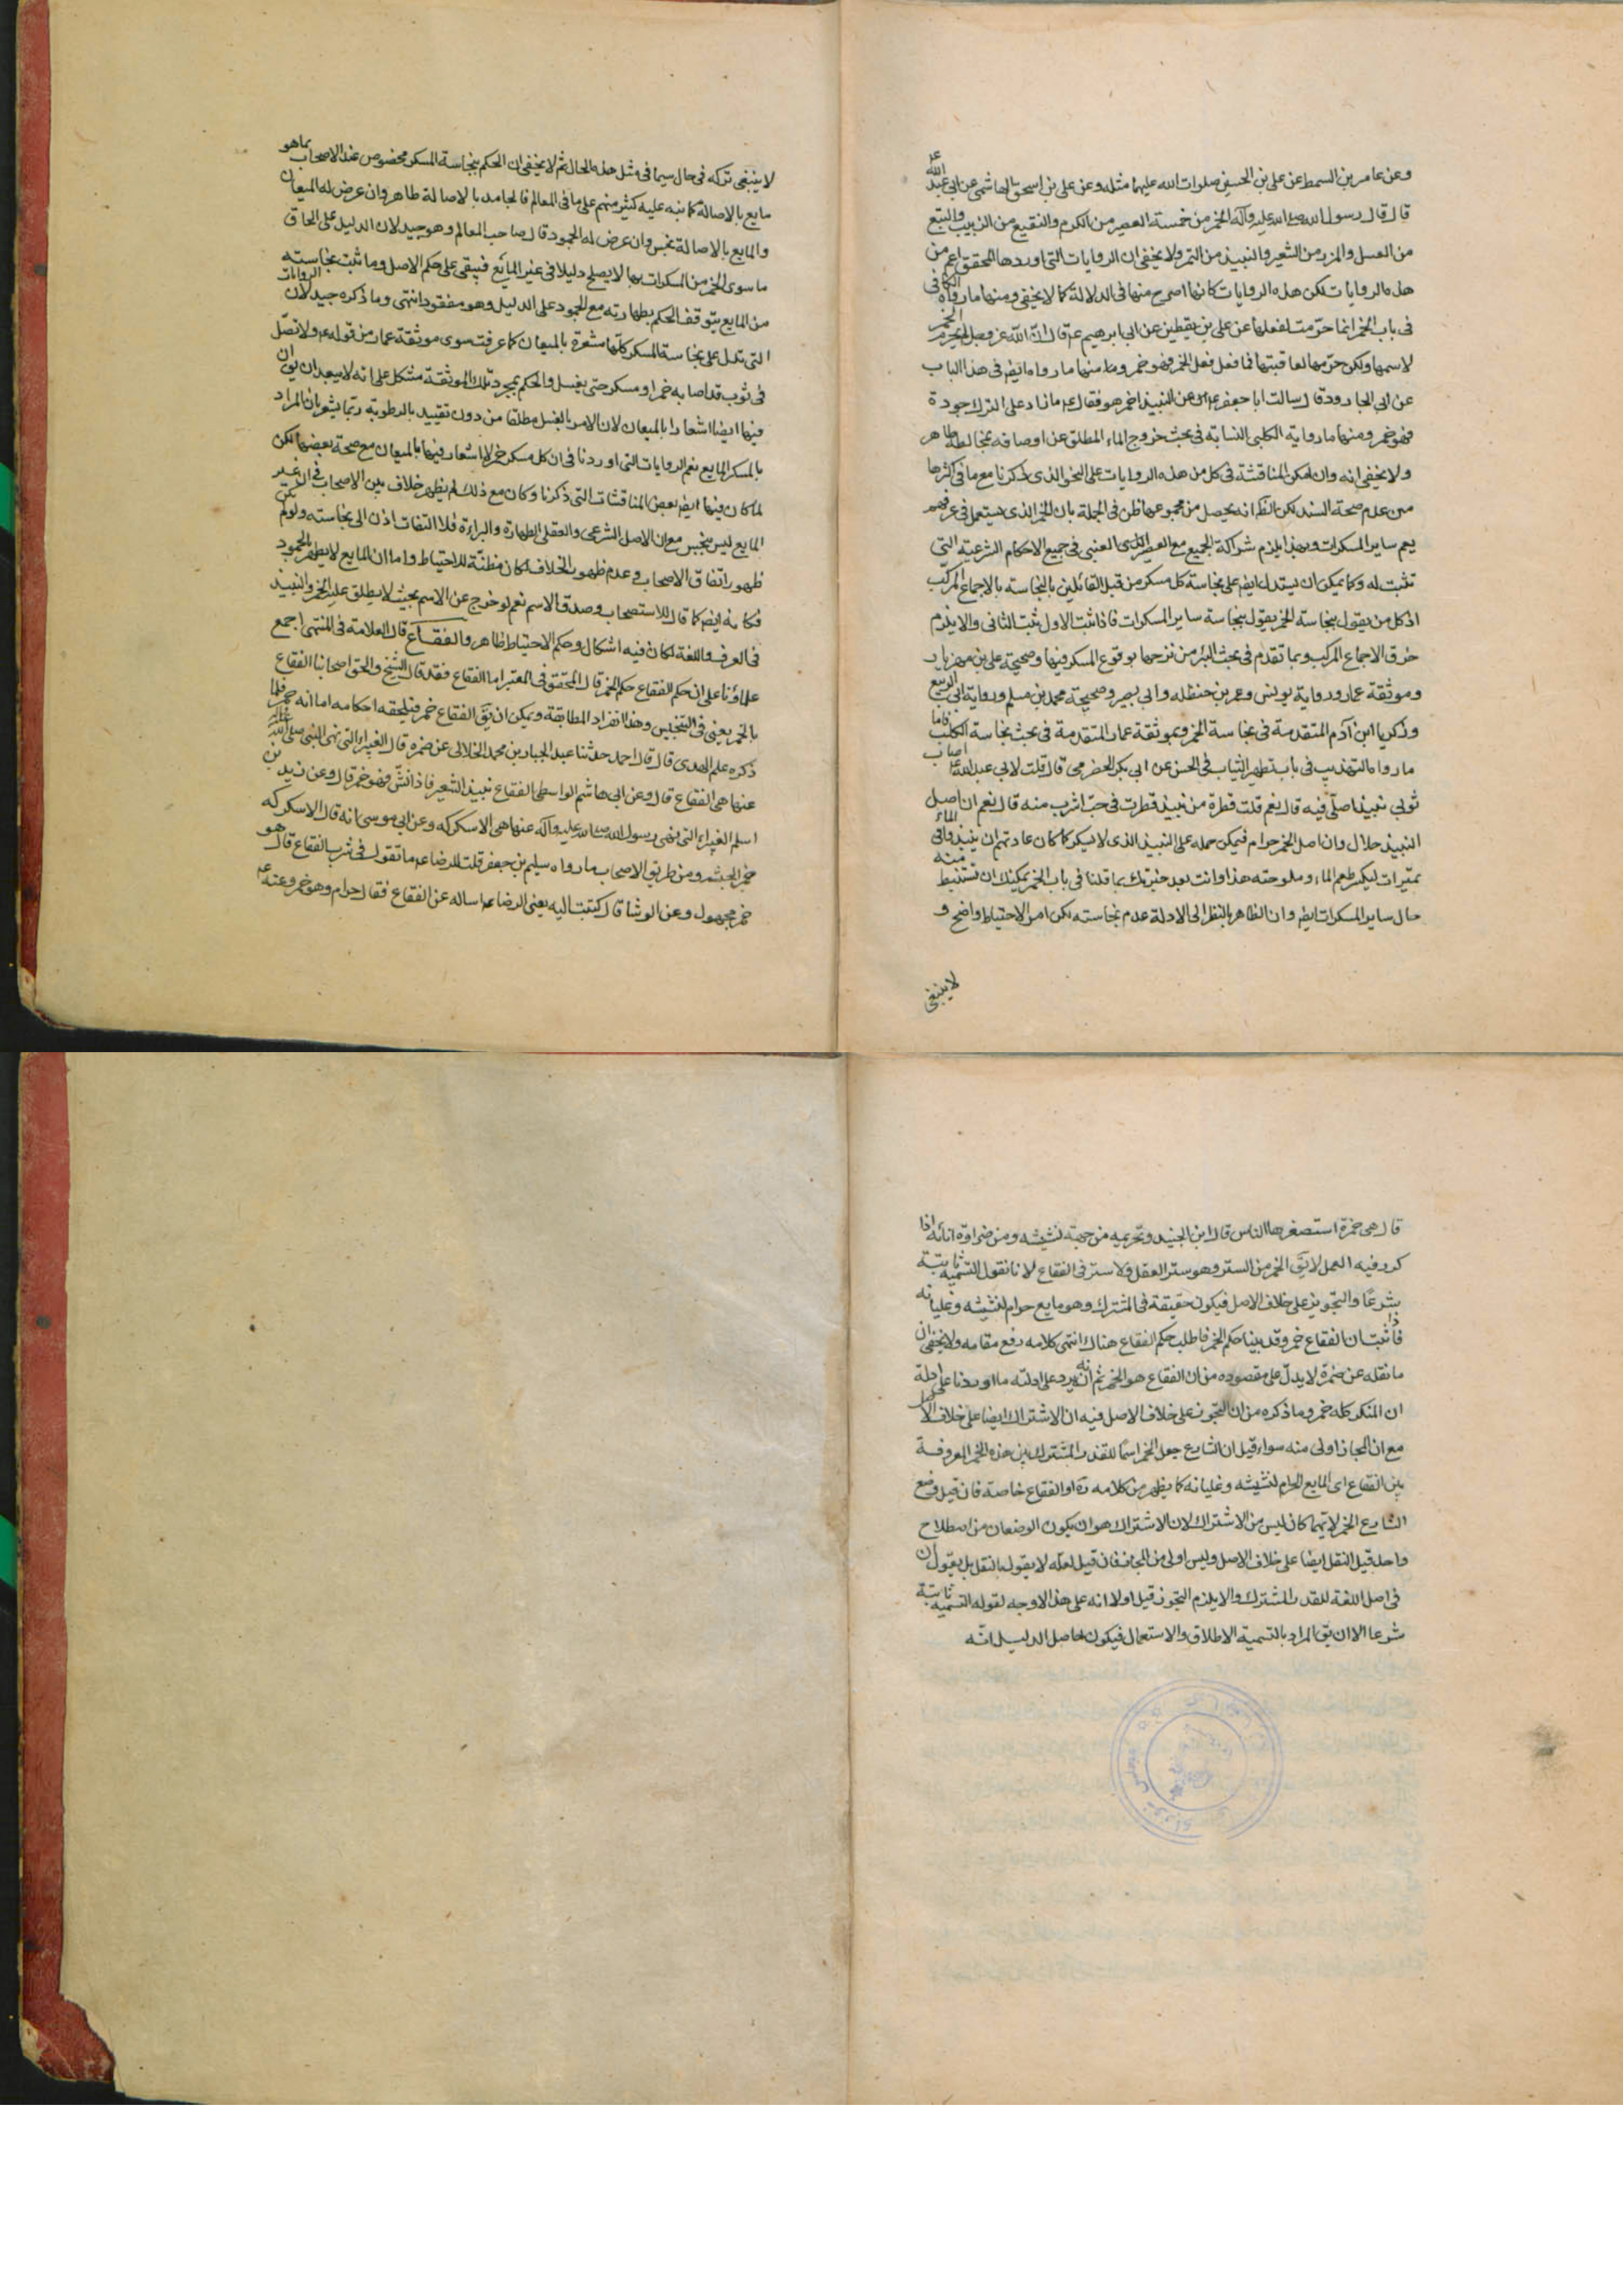 وعن عامر بن السمط عن علي بن الحسين صلوات الله عليهما مثله وعن علي بن اسحق الهاشمي عن ابي عبد الله ع
قال قال رسول الله صلى الله عليه وآله الخمر من خمسة العصير من الكرم والنقيع من الزبيب والبتع
من العسل والمزر من الشعير والنبيذ من التمر ولا يخفى ان الروايات التي اوردها المحقق اعم من
هذه الروايات لكن هذه الروايات كانها اصرح منها في الدلالة كما لا يخفى ومنها ما رواه الكافي في
في باب الخمر انما حرمت لفعلها عن علي بن يقطين عن ابي ابرهيم ع قال ان الله عز وجل لم يحرم الخمر
لاسمها ولكن حرمها لعاقبتها فما فعل فعل الخمر فهو خمر ومنها ما رواه ايض في هذا الباب
عن ابي الجارود قال سالت ابا جعفر ع عن النبيذ اخمر هو فقال ع ما زاد على الترك جودة
فهو خمر ومنها ما رواية الكلبي النسابة في بحث خروج الماء المطلق عن اوصافه بمخالطة طاهر
ولا يخفى انه وان امكن المناقشة في كل من هذه الروايات على النحو الذي ذكرنا مع ما في اكثرها
من عدم صحة السند لكن الظ انه يحصل من مجموعها ظن في الجملة بان الخمر الذي يستعمل في عرفهم
يعم ساير المسكرات وبهذا يلزم شراكة الجميع مع العصير العنبي في جميع الاحكام الشرعية التي
تثبت له وكما يمكن ان يستدل ايض على نجاسة كل مسكر من قبل القائلين بالنجاسة بالاجماع المركب
اذ كل من يقول بنجاسة الخمر يقول بنجاسة ساير المسكرات فاذا ثبت الاول ثبت الثاني والا يلزم
خرق الاجماع المركب وبما تقدم في بحث البئر من نزحها بوقوع المسكر فيها وصحيحة علي بن مهزيار
وموثقة عمار ورواية يونس وعمر بن حنظله وابي بصير وصحيحة محمد بن مسلم ورواية ابي الربيع
وزكريا ابن آدم المتقدمة في نجاسة الخمر وبموثقة عمار المتقدمة في بحث نجاسة الكلب فاما
ما رواه التهذيب في باب تطهير الثياب في الحسن عن ابي بكر الحضرمي قال قلت لابي عبد الله ع اصاب
ثوبي نبيذ اصلي فيه قال نعم قلت قطرة من نبيذ قطرت في حب اشرب منه قال نعم ان اصل
النبيذ حلال وان اصل الخمر حرام فيمكن حمله على النبيذ الذي لا يسكر كما كان عادتهم ان ينبذوا في الماء
تميرات ليكسر طعم الماء وملوحته هذا وانت بعد خبرتك بما قلنا في باب الخمر يمكنك ان تستنبط منه
حال ساير المسكرات ايض وان الظاهر بالنظر الى الادلة عدم نجاسته لكن امر الاحتياط واضح و
لا ينبغي
لا ينبغي تركه في حال سيما في مثل هذه الحال ثم لا يخفى ان الحكم بنجاسة المسكر مخصوص عند الاصحاب بما هو
مايع بالاصالة كما نبه عليه كثير منهم على ما في المعالم فالجامد بالاصالة طاهر وان عرض له الميعان
والمايع بالاصالة نجس وان عرض له الجمود قال صاحب المعالم وهو جيد لان الدليل على الحاق
ما سوى الخمر من المسكرات بها لا يصلح دليلا في غير المائع فيبقى على حكم الاصل وما ثبت نجاسته
من المايع يتوقف الحكم بطهارته مع الجمود على الدليل وهو مفقود انتهى وما ذكره جيد لان الروايات
التي تدل على نجاسة المسكر كلها مشعرة بالميعان كما عرفت سوى موثقة عمار من قوله ع ولا تصل
في ثوب قد اصابه خمر او مسكر حتى يغسل والحكم بمجرد تلك الموثقة مشكل على انه لا يبعد ان يق ان
فيها ايضا اشعارا بالميعان لان الامر بالغسل مطلقا من دون تقييد بالرطوبة ربما يشعر بان المراد
بالمسكر المايع نعم الروايات التي اوردنا في ان كل مسكر خمر لا اشعار فيها بالميعان مع صحة بعضها لكن
لما كان فيها ايض بعض المناقشات التي ذكرنا وكان مع ذلك لم يظهر خلاف بين الاصحاب في ان غير
المايع ليس بنجس مع ان الاصل الشرعي والعقلي الطهارة والبراءة فلا التفات اذن الى نجاسته ولو لم يكن
ظهور اتفاق الاصحاب وعدم ظهور الخلاف لكان مظنة للاحتياط واما ان المايع لا يطهر بالجمود
فكانه ايض كما قال للاستصحاب وصدق الاسم نعم لو خرج عن الاسم بحيث لا يطلق عليه الخمر والنبيذ
في العرف واللغة لكان فيه اشكال وحكم الاحتياط ظاهر والفقاع قال العلامة في المنتهى اجمع
علماؤنا على ان حكم الفقاع حكم الخمر قال المحقق في المعتبر اما الفقاع فقد قال الشيخ والحق اصحابنا الفقاع
بالخمر يعني في التنجيس وهذا انفراد المطابقة ويمكن ان يق الفقاع خمر فيلحقه احكامه اما انه خمر فلما
ذكره علم الهدى قال قال احمد حدثنا عبد الجبار بن محمد الخلالي عن ضمره قال الغبيراء التي نهى النبي صلى الله عليه
عنها هي الفقاع قال وعن ابي هاشم الواسطي الفقاع نبيذ الشعير فاذا نش فهو خمر قال وعن زيد بن
اسلم الغبيراء التي نهى رسول الله صلى الله عليه وآله عنها هي الاسكركه وعن ابي موسى انه قال الاسكركه
خمر الحبشه ومن طريق الاصحاب ما رواه سليم بن جعفر قلت للرضا ع ما تقول في شرب الفقاع قال هو
خمر مجهول وعن الوشا قال كتبت اليه يعني الرضا ع اساله عن الفقاع فقال حرام وهو خمر وعنه ع
قال هي خمرة استصغرها الناس قال ابن الجنيد وتحريمه من جهة نشيشه ومن ضراوة انائه اذا
كرر فيه العمل لا يق الخمر من الستر وهو ستر العقل ولا ستر في الفقاع لانا نقول التسمية ثابتة
شرعا والتجوز على خلاف الاصل فيكون حقيقة في المشترك وهو مايع حرام لنشيشه وغليانه
فاذا ثبت ان الفقاع خمر وقد بينا حكم الخمر فاطلب حكم الفقاع هناك انتهى كلامه رفع مقامه ولا يخفى ان
ما نقله عن ضمرة لا يدل على مقصوده من ان الفقاع هو الخمر ثم انه يرد على ادلته ما اوردنا على ادلة
ان المسكر كله خمر وما ذكره من ان التجوز على خلاف الاصل فيه ان الاشتراك ايضا على خلاف الاصل
مع ان المجاز اولى منه سواء قيل ان الشارع جعل الخمر اسما للقدر المشترك بين هذه الخمر المعروفة
بين الفقاع اى المايع الحرام لنشيشه وغليانه كما يظهر من كلامه ره او الفقاع خاصة فان قيل وضع
الشارع الخمر لايهما كان ليس من الاشتراك لان الاشتراك هو ان يكون الوضعان من اصطلاح
واحد قيل النقل ايضا على خلاف الاصل وليس اولى من المجاز فان قيل لعله لا يقول بالنقل بل يقول ان
في اصل اللغة للقدر المشترك والا يلزم التجوز قيل اولا انه على هذا لا وجه لقوله التسمية ثابتة
شرعا الا ان يق المراد بالتسمية الاطلاق والاستعمال فيكون حاصل الدليل انه